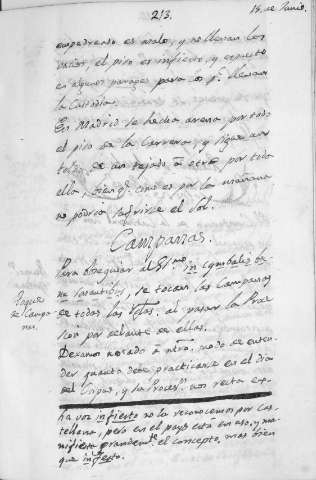 213.
15 de Junio.
empedrento es malo, y no llevan los
el piso es infiesto, y expuesto
en algunos parages para los qe. llevan
la Custodia.
En Madrid se hecha arena por todo
el piso de la Carrera, y sigue un
toldo de un tejado à otro por toda
ella, bien qe. como es por la mañana
no podria sufrirse el Sol.
Campanas.
Para obsequiar al SSmo. in cymbalis be-
ne sonantibus, se tocan las Campanas
de todas las Yglas. al pasar la Proce-
sion por delante de ellas.
Toque
de Campa
nas.
Dexamos notado à ntro. modo de enten-
der quanto debe practicarse en el dia
del Corpus, y la Procesn. nos resta ex-
la voz infiesto no la reconocemos por Cas-
tellana, pero en el pays está en uso, y ma-
nifiesta grandemte. el concepto, mas bien
que